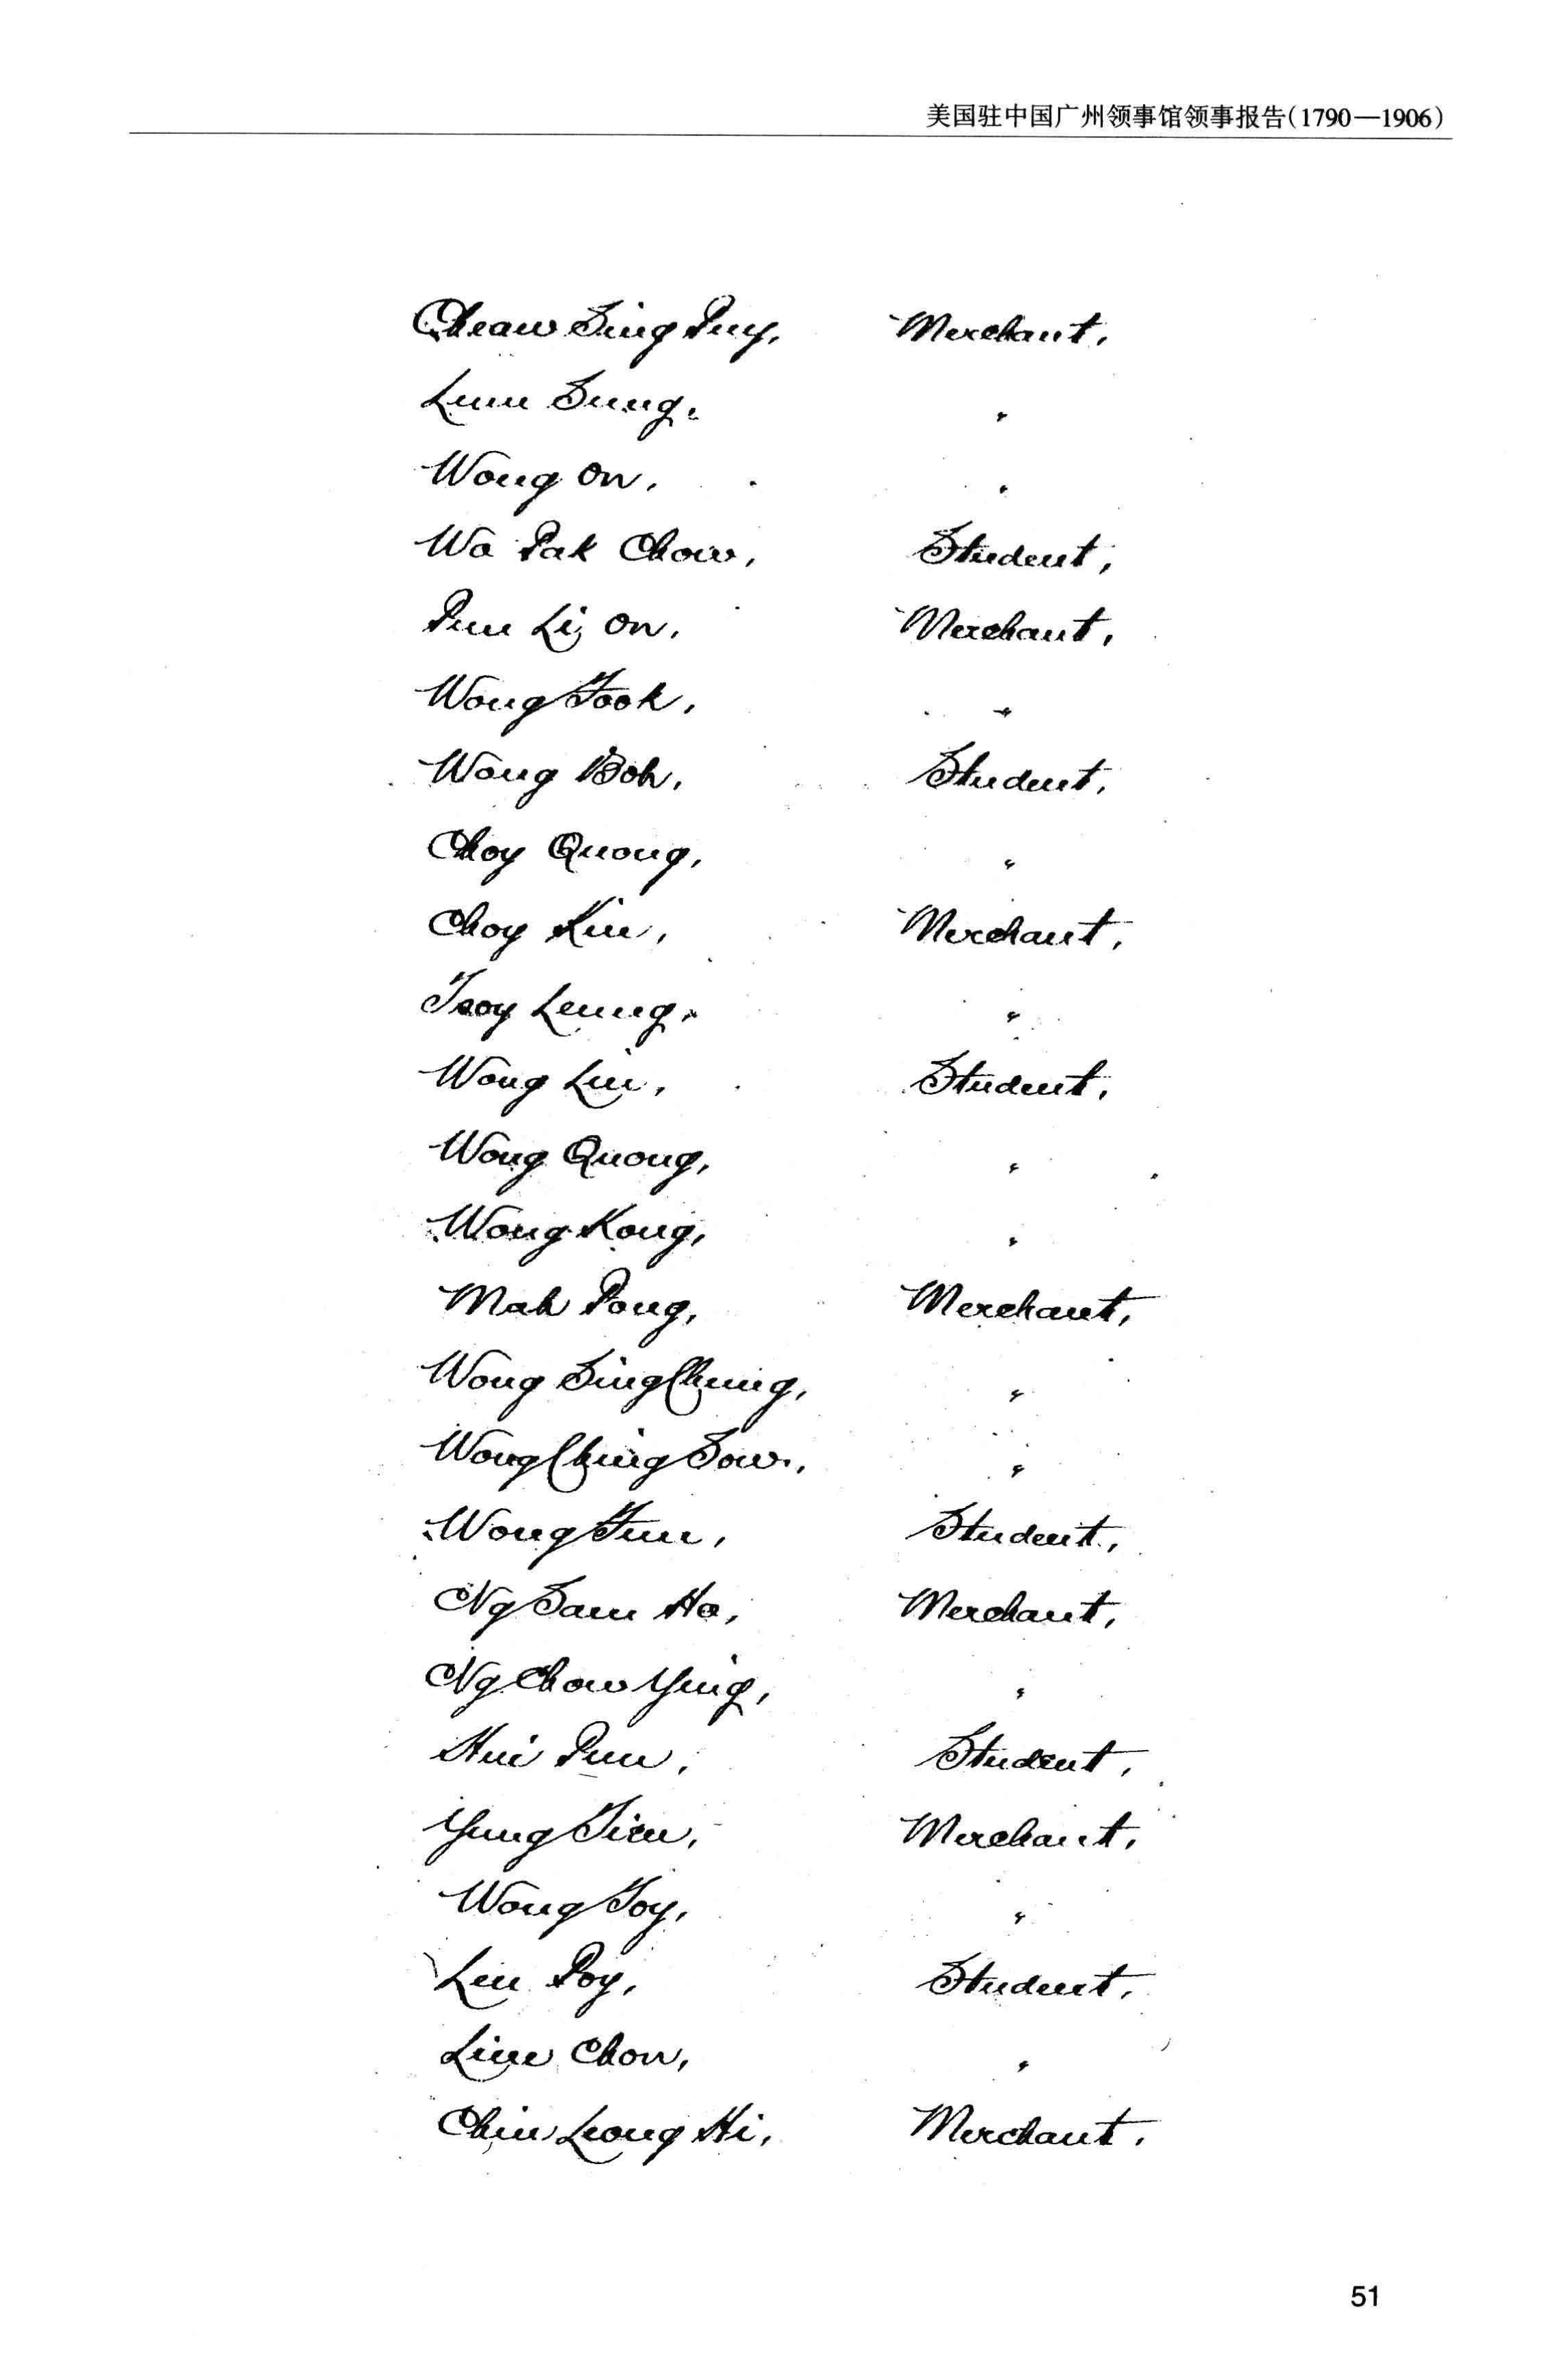 美国驻中国广州领事馆领事报告(1790—1906)
Cheaw Sing Puy, Merchant,
Lum Sung, "
Wong On, "
Wo Pak Chow, Student,
Pun Li On, Merchant,
Wong Fook, "
Wong Boh, Student,
Choy Quong, "
Choy Kin, Merchant,
Tsoy Leung, "
Wong Lin, Student,
Wong Quong, "
Wong Kong, "
Mah Pong, Merchant,
Wong Sing Chung, "
Wong Ching Sow, "
Wong Fun, Student,
Ng Sam Ho, Merchant,
Ng Chow Ying, "
Hui Pun, Student,
Yung Tien, Merchant,
Wong Toy, "
Lin Poy, Student,
Lim Chow, "
Chin Leong Hi, Merchant.
51